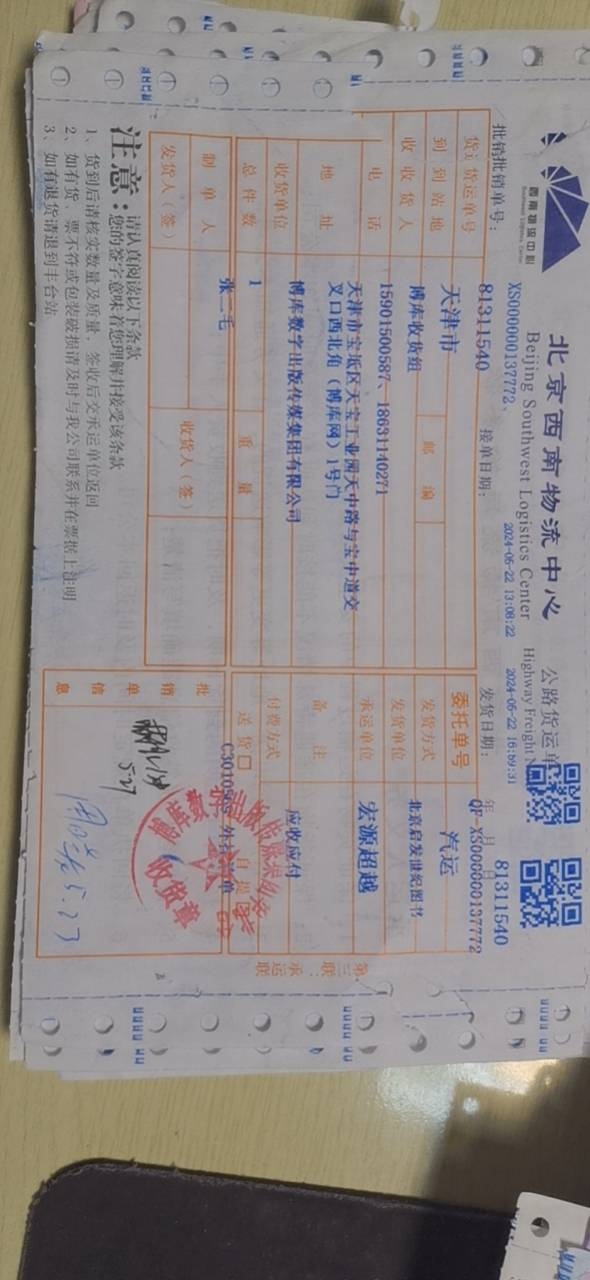 西南物流中心
北京西南物流中心
Beijing Southwest Logistics Center
公路货运单
Highway Freight
批销批销单号：
XS000000137772、
接单日期：
2024-05-22 13:08:22
发货日期：
2024-05-22 16:59:31
年 月 日
81311540
货运货运单号
81311540
委托单号
QF-XS000000137772
到到站地
天津市
邮编
发货方式
汽运
收收货人
博库收货组
发货单位
北京启发世纪图书
电话
15901500587、18631140271
承运单位
宏源超越
地址
天津市宝坻区天宝工业园天中路与宝中道交
叉口西北角（博库网）1号门
备注
收货单位
博库数字出版传媒集团有限公司
应收应付
总件数
1
重量
付费方式
送货口
自提口
制单人
张二毛
发货人（签）
收货人（签）
批销单信息
5.27
5.27
收货章
第三联：承运联
注意：
请认真阅读以下条款
您的签字意味着您理解并接受该条款
1、货到后请核实数量及质量，签收后交承运单位返回
2、如有货、票不符或包装破损请及时与我公司联系并在票据上注明
3、如有退货请退到丰台站